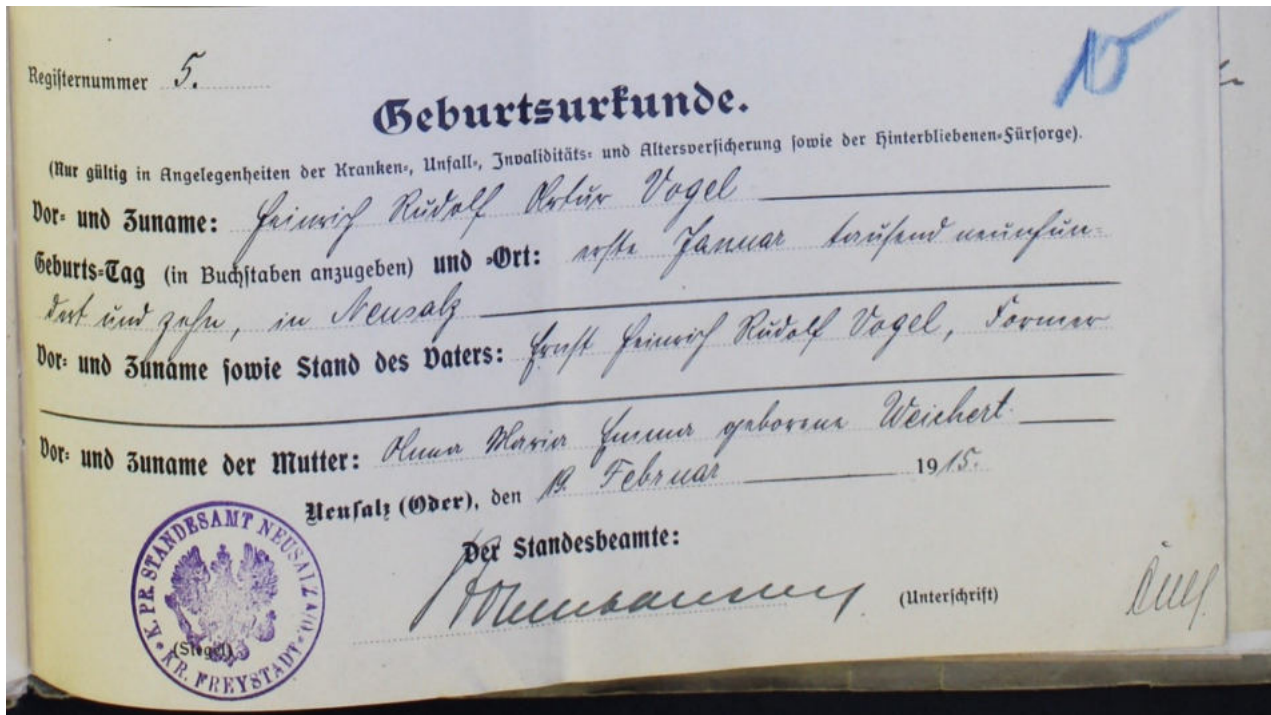 Registernummer 5.
15
Geburtsurkunde.
(Nur gültig in Angelegenheiten der Kranken-, Unfall-, Invaliditäts- und Altersversicherung sowie der Hinterbliebenen-Fürsorge).
Vor- und Zuname: Heinrich Rudolf Artur Vogel
Geburts-Tag (in Buchstaben anzugeben) und -Ort: erste Januar tausend neunhun-
dert und zehn, in Neusalz
Vor- und Zuname sowie Stand des Vaters: Ernst Heinrich Rudolf Vogel, Former
Vor- und Zuname der Mutter: Anna Maria Emma geborene Weichert.
Neusalz (Oder), den 19. Februar 1915.
Der Standesbeamte:
(Unterschrift)
K. PR. STANDESAMT NEUSALZ A/O
KR. FREYSTADT
(Siegel)